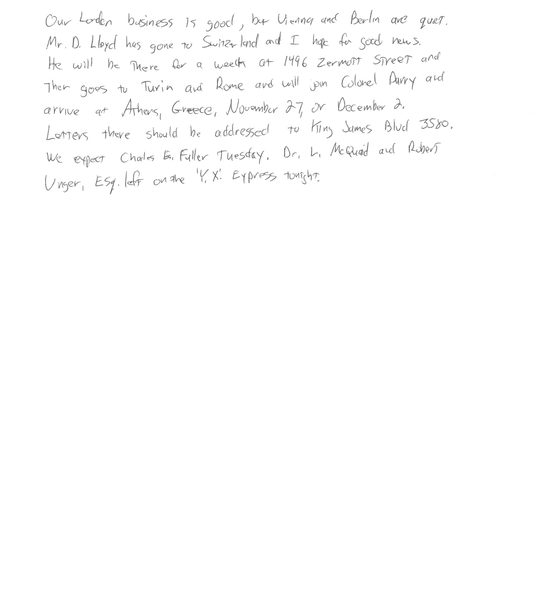 Our London business is good, but Vienna and Berlin are quiet.
Mr. D. Lloyd has gone to Switzerland and I hope for good news.
He will be there for a week at 1496 Zermott Street and
then goes to Turin and Rome and will join Colonel Parry and
arrive at Athens, Greece, November 27, or December 2.
Letters there should be addressed to King James Blvd 3580.
We expect Charles E. Fuller Tuesday. Dr. L. McQuaid and Robert
Unger, Esq. left on the 'Y.X.' Express tonight.